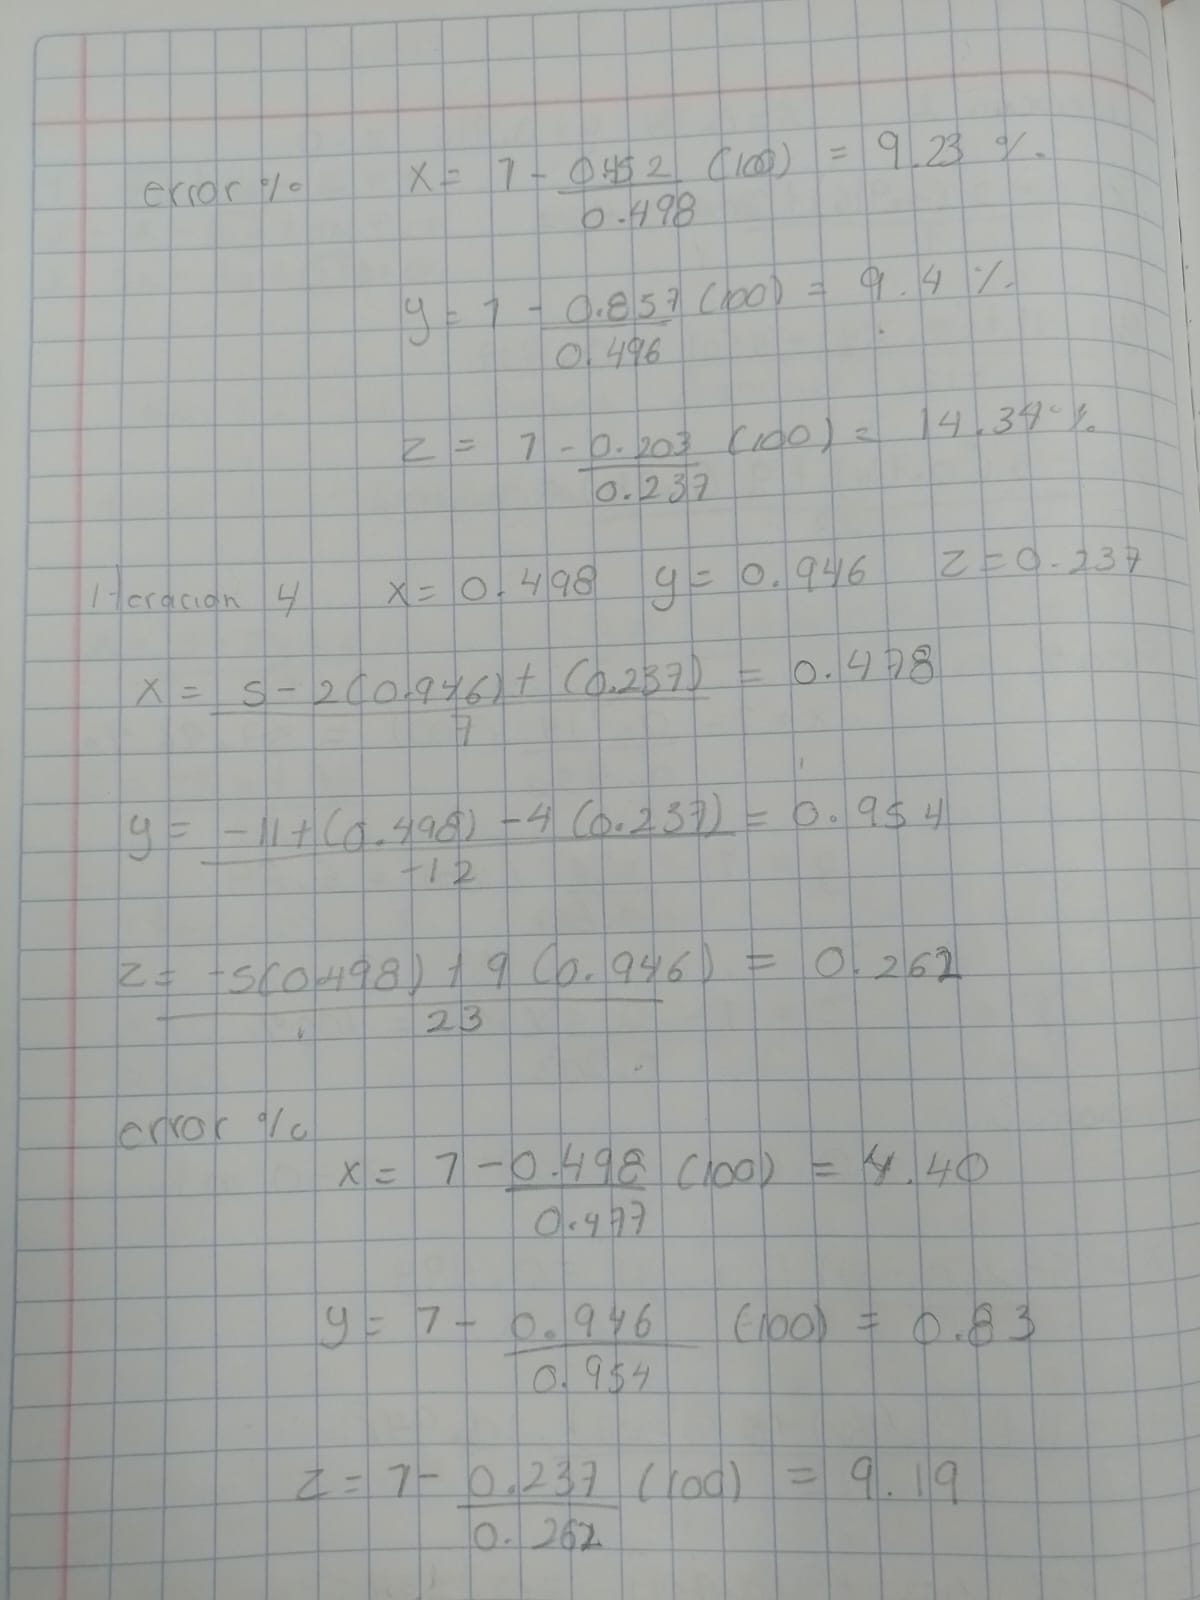 error % x = 1 - 0.452 / 0.498 (100) = 9.23 %
y = 1 - 0.857 / 0.496 (100) = 9.4 %
z = 1 - 0.203 / 0.237 (100) = 14.34 %
Iteracion 4 x = 0.498 y = 0.946 z = 0.237
x = 5 - 2(0.946) + (0.237) / 7 = 0.478
y = -11 + (0.498) - 4 (0.237) / -12 = 0.954
z = -5(0.498) + 9 (0.946) / 23 = 0.262
error %
x = 1 - 0.498 / 0.477 (100) = 4.40
y = 1 - 0.946 / 0.954 (100) = 0.83
z = 1 - 0.237 / 0.262 (100) = 9.19